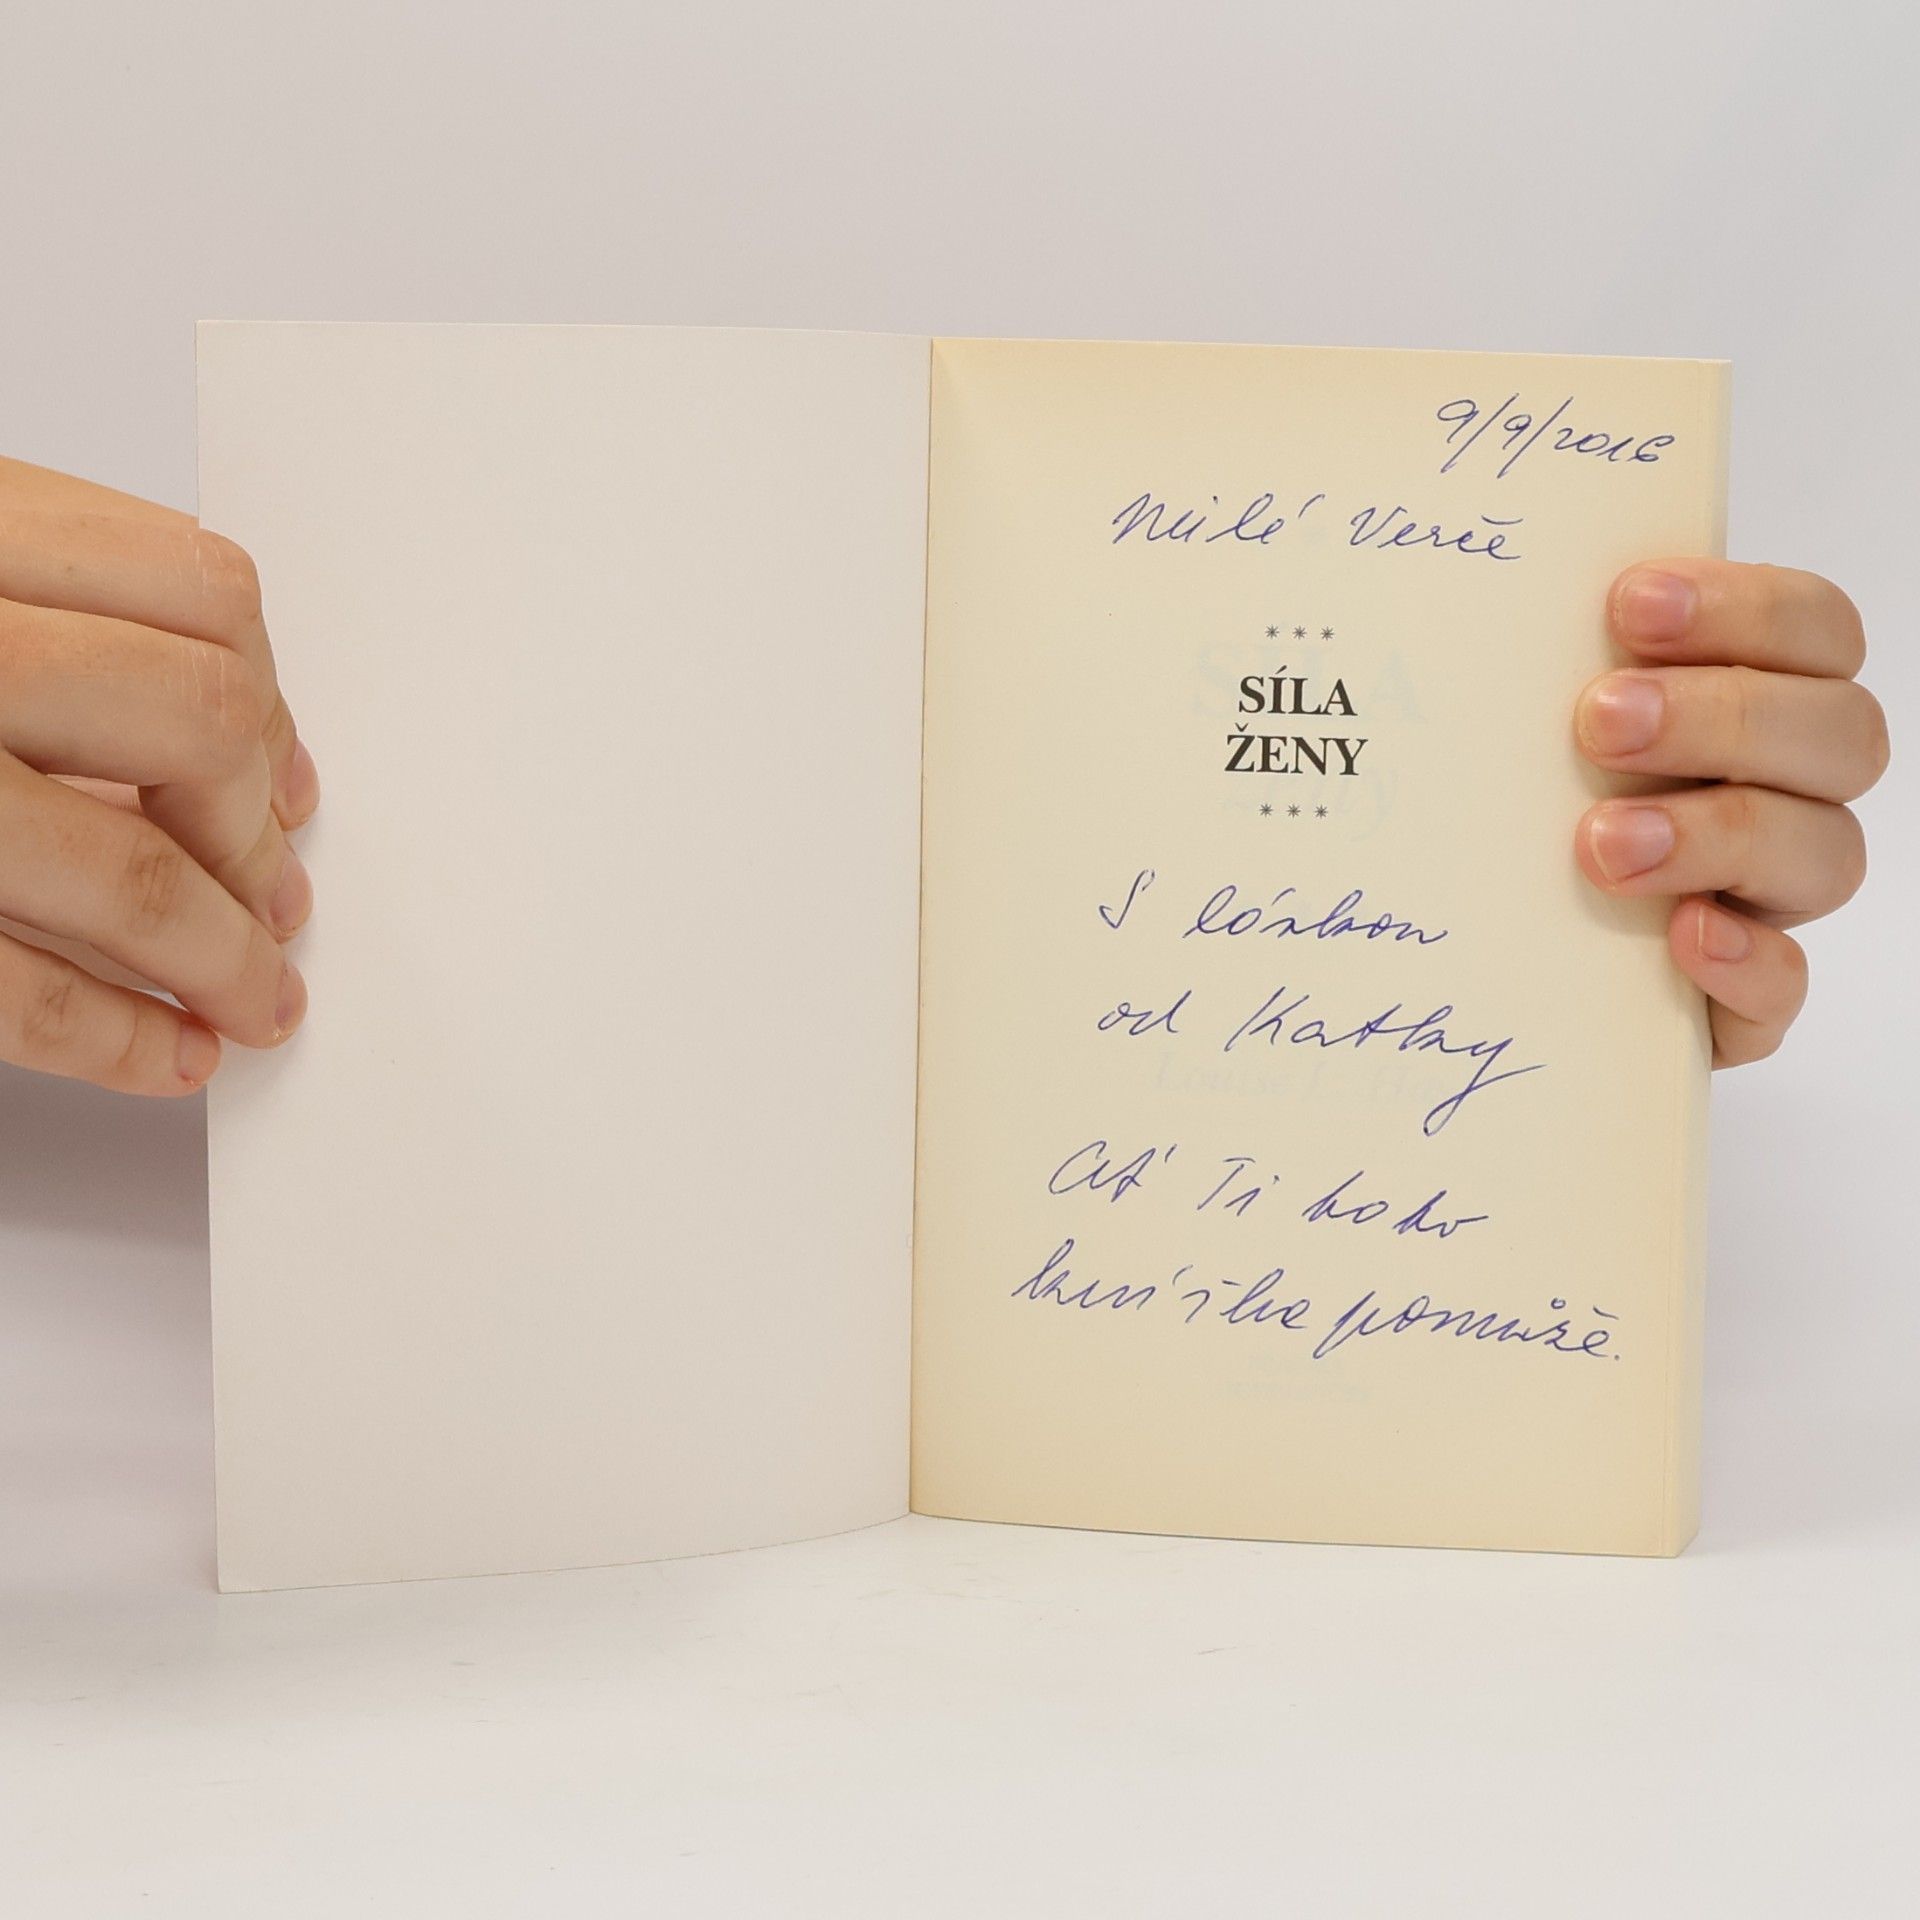 9/9/2016
Milé Verče
* * *
SÍLA
ŽENY
* * *
S láskou
od Katky
Ať Ti tato
knížka pomůže.
Louise L. Hay